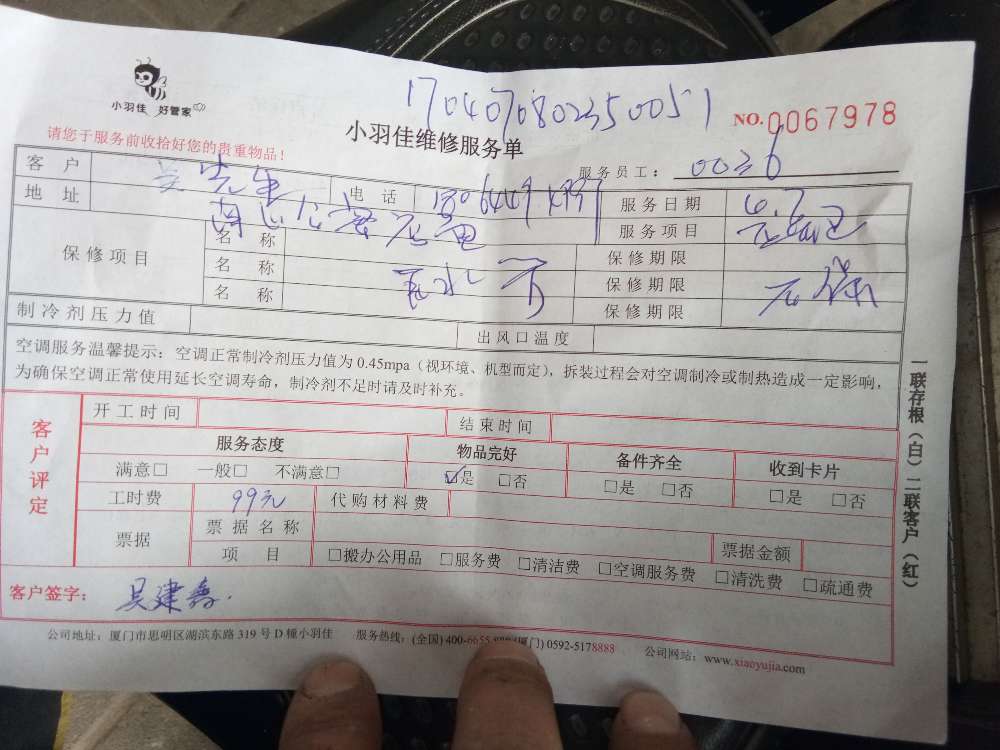 小羽佳 好管家
1704070802350051
NO.0067978
请您于服务前收拾好您的贵重物品！
小羽佳维修服务单
服务员工： 0036
客户 先生 电话 服务日期
地址 服务项目
保修项目 名称 保修期限
名称 保修期限
名称 保修期限
制冷剂压力值 出风口温度
空调服务温馨提示：空调正常制冷剂压力值为0.45mpa（视环境、机型而定），拆装过程会对空调制冷或制热造成一定影响，
为确保空调正常使用延长空调寿命，制冷剂不足时请及时补充。
客户评定
开工时间 结束时间
服务态度 物品完好 备件齐全 收到卡片
满意□ 一般□ 不满意□ ☑是 □否 □是 □否 □是 □否
工时费 99元 代购材料费
票据 票据名称 票据金额
项目 □搬办公用品 □服务费 □清洁费 □空调服务费 □清洗费 □疏通费
客户签字： 吴建鑫.
公司地址：厦门市思明区湖滨东路319号D幢小羽佳 服务热线：(全国) 400-6655 门) 0592-5178888 公司网站：www.xiaoyujia.com
一联存根（白）二联客户（红）